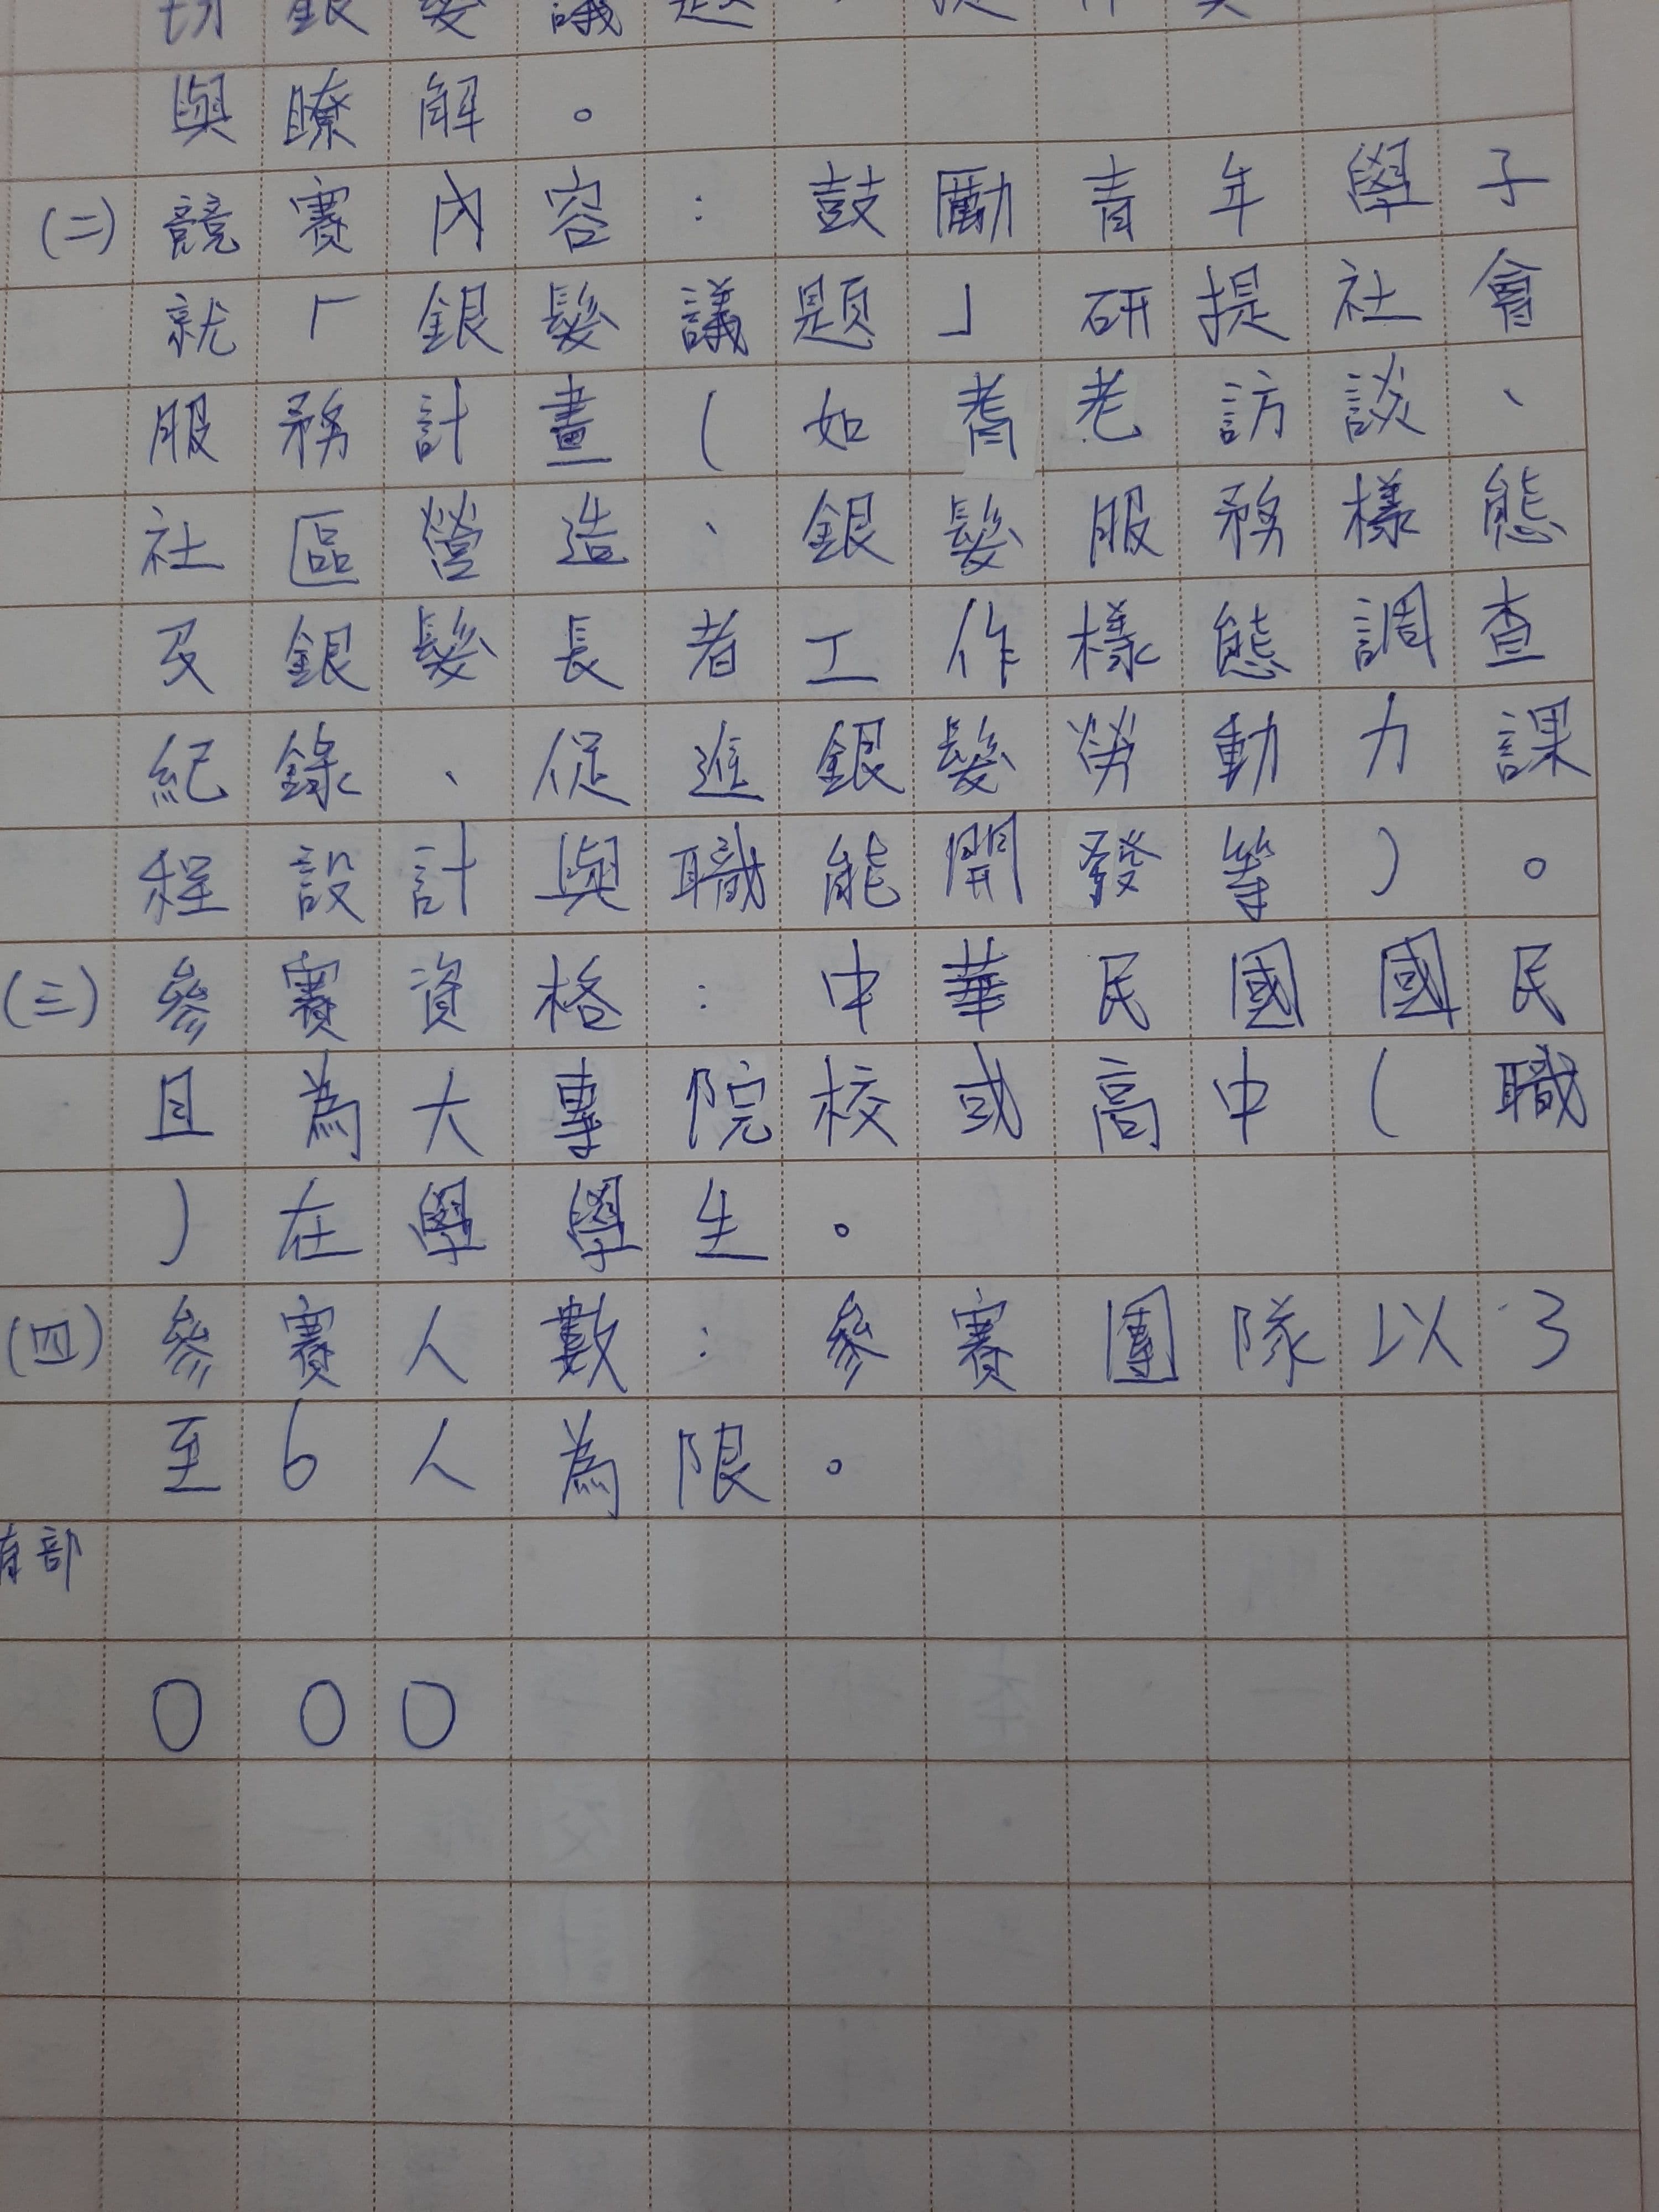 切銀髮議題，提
與瞭解。
(二)競賽內容：鼓勵青年學子
就「銀髮議題」研提社會
服務計畫(如耆老訪談、
社區營造、銀髮服務樣態
及銀髮長者工作樣態調查
紀錄、促進銀髮勞動力課
程設計與職能開發等)。
(三)參賽資格：中華民國國民
且為大專院校或高中(職
)在學學生。
(四)參賽人數：參賽團隊以3
至6人為限。
部
○○○